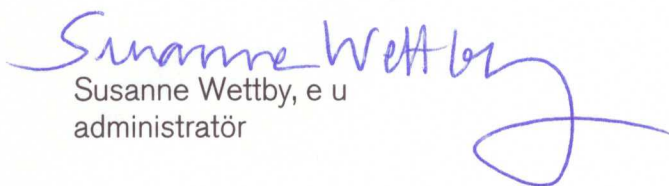 Susanne Wettby
Susanne Wettby, e u
administratör